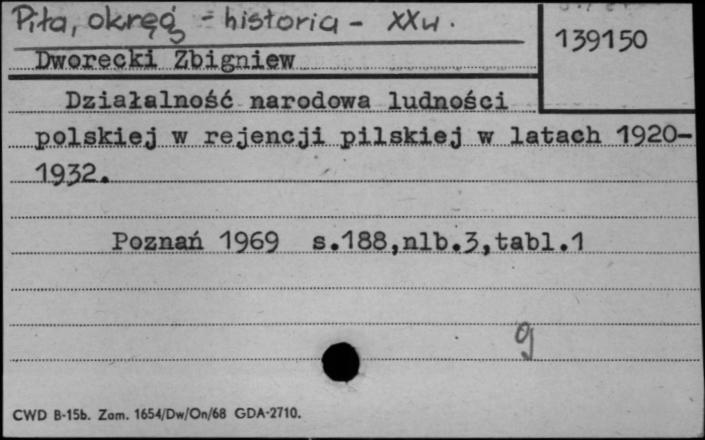 Piła, okręg - historia - XXw.
139150
Dworecki Zbigniew
Działalność narodowa ludności
polskiej w rejencji pilskiej w latach 1920-
1932.
Poznań 1969 s.188,nlb.3,tabl.1
g
CWD B-15b. Zam. 1654/Dw/On/68 GDA-2710.